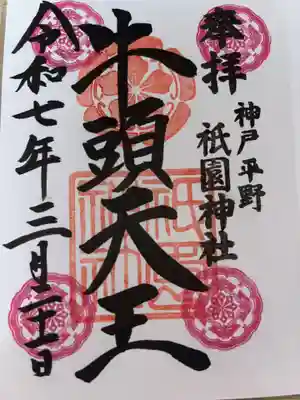 奉拝
神戸平野
祇園神社
牛頭天王
令和七年三月二十一日